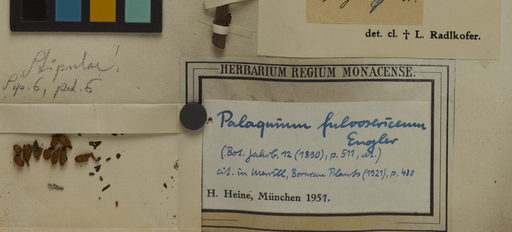 det. cl. † L. Radlkofer.
Stipulae!
HERBARIUM REGIUM MONACENSE.
Palaquium fulvosericeum
Engler
(Bot. Jahrb. 12 (1890), p. 511,
cit. in Merrill, Bornean Plants (1921), p. 480
H. Heine, München 1951.